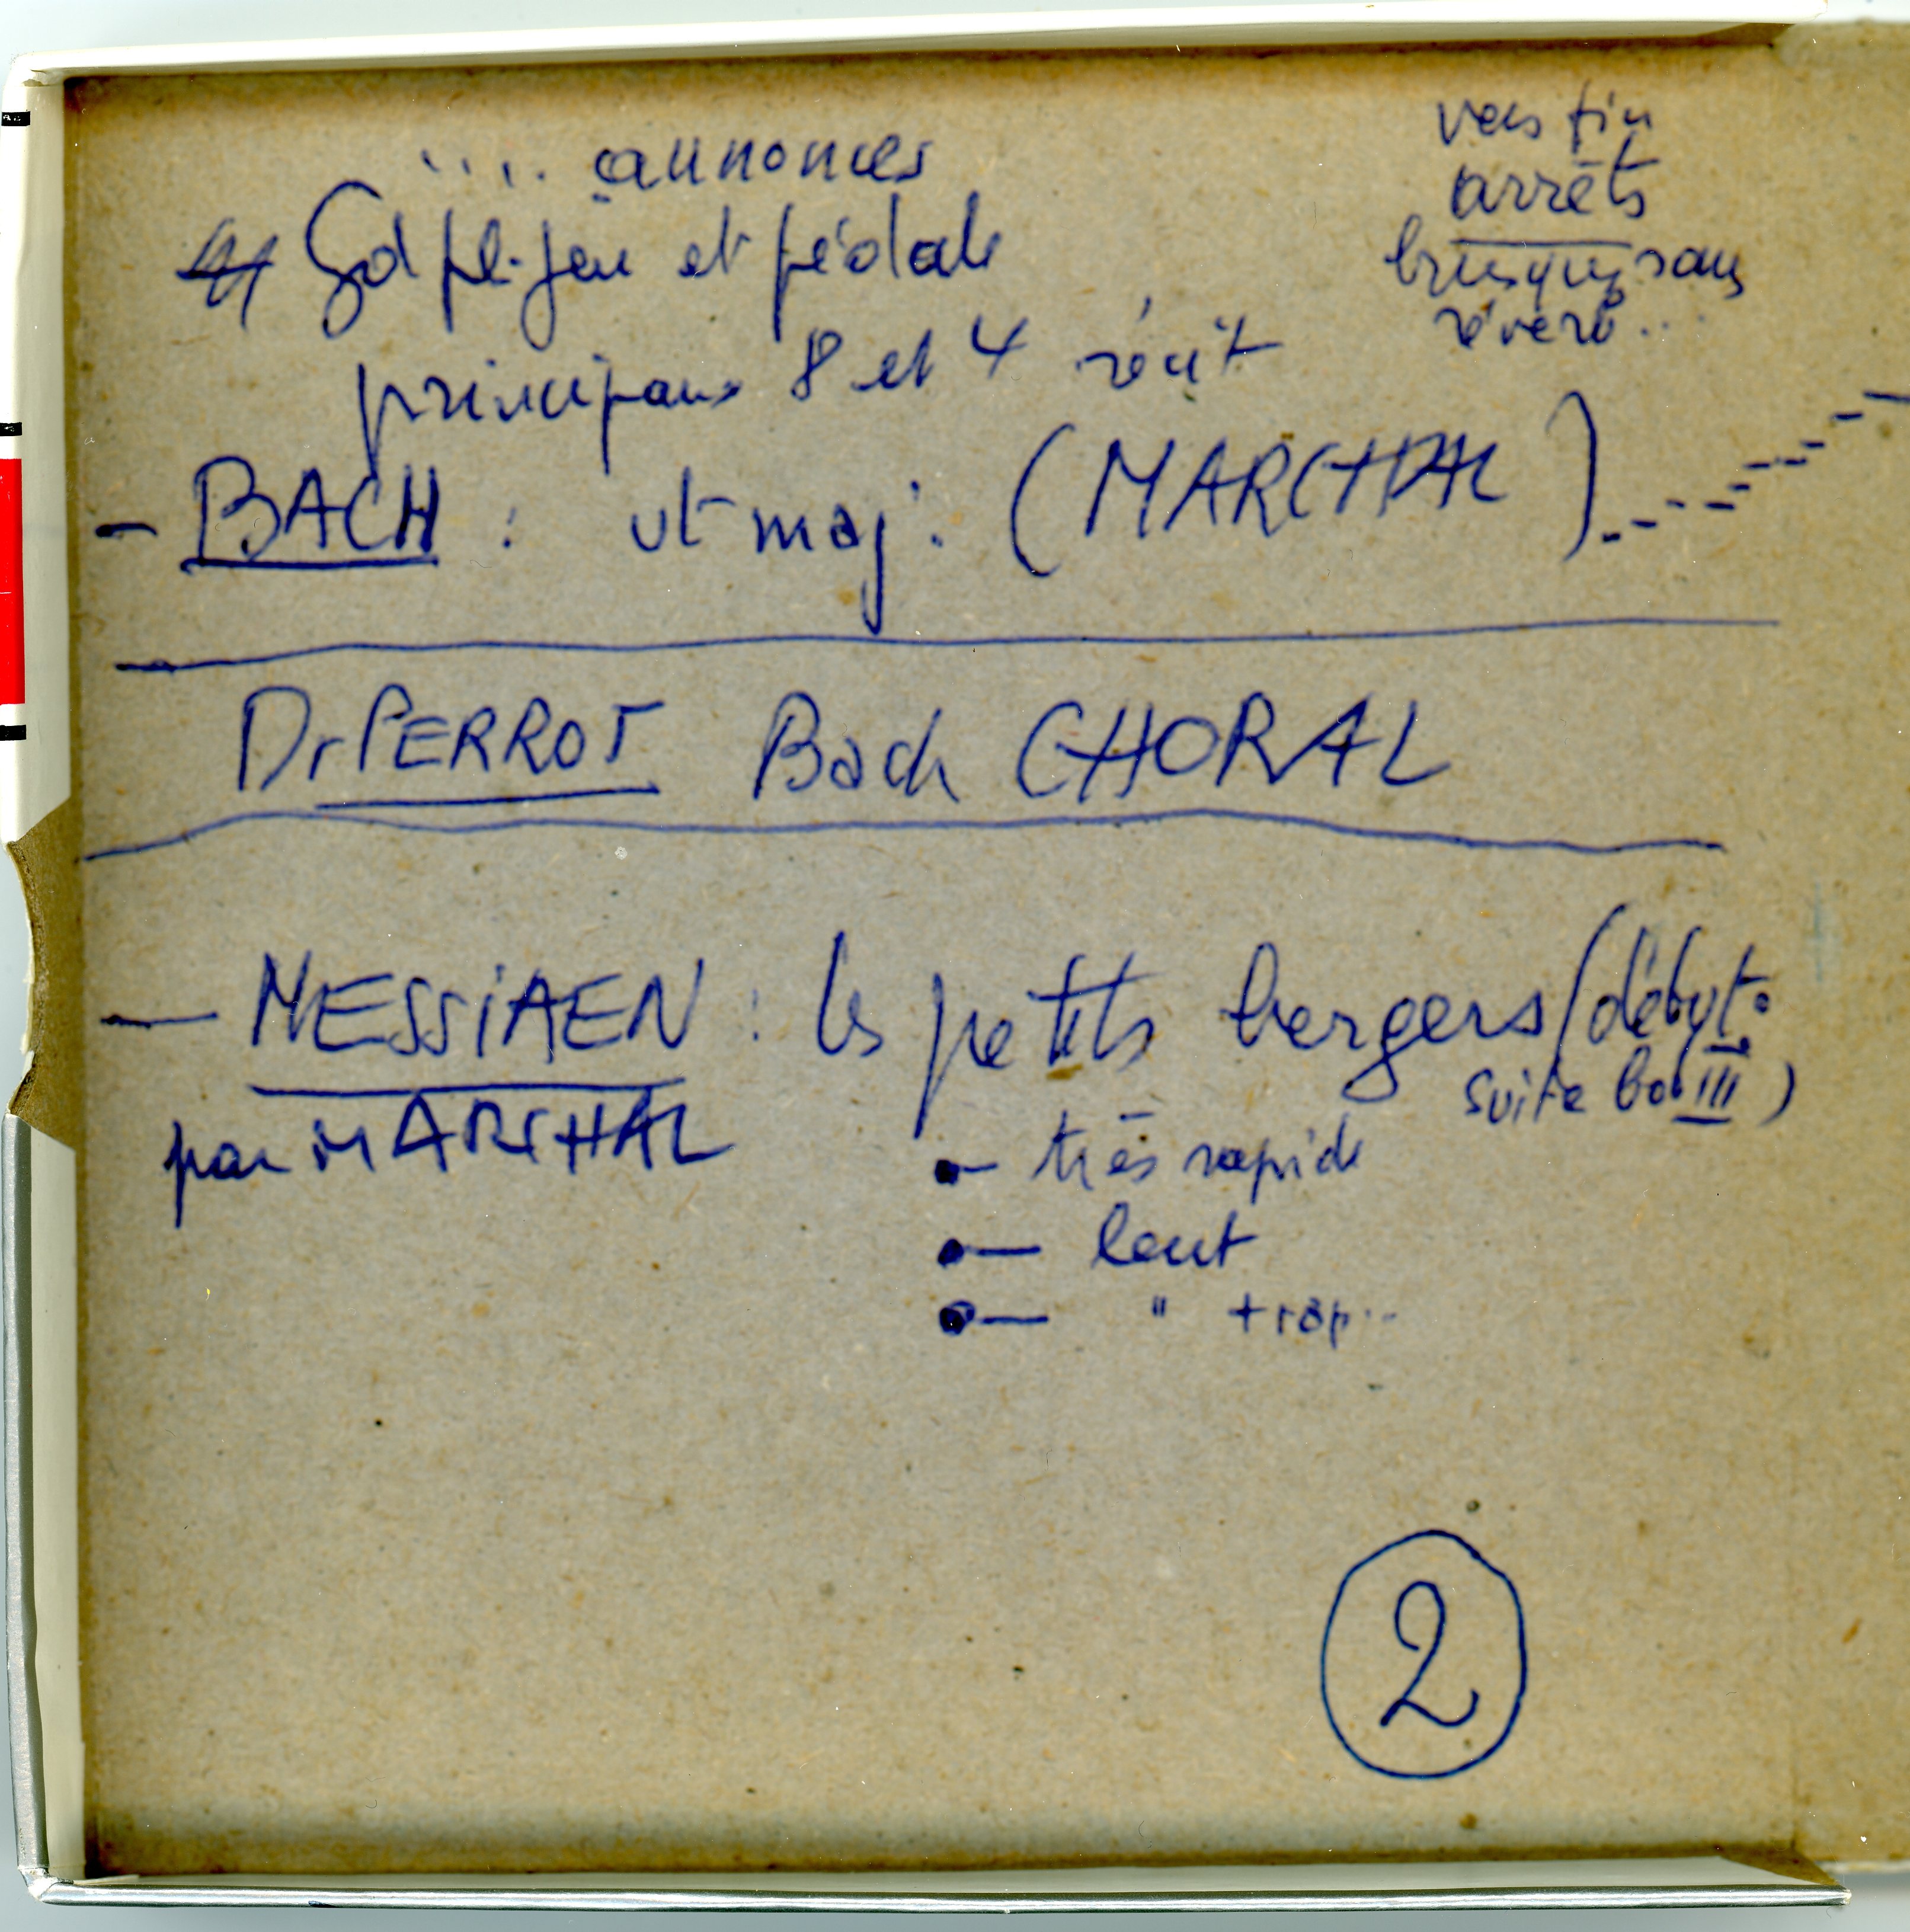 .... annonces
Gd pl-jeu et pédale
principaux 8 et 4 récit
vers fin
arrêts
brusques sans
réverb...
- BACH : ut maj. (MARCHAL)
Dr PERROT Bach CHORAL
— MESSIAEN : les petits bergers (début.
suite bob III)
par MARCHAL
•- très rapide
•— lent
•— " + rap..
2